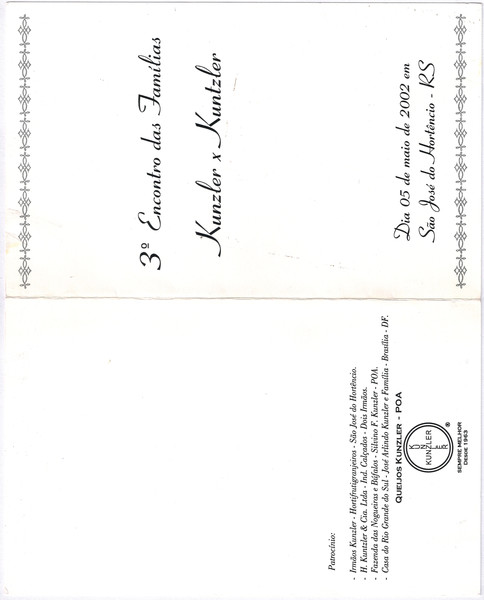 3º Encontro das Famílias
Kunzler x Kuntzler
Dia 05 de maio de 2002 em
São José do Hortêncio - RS
Patrocínio:
- Irmãos Kunzler - Hortifrutigranjeiros - São José do Hortêncio.
- H. Kuntzler & Cia. Ltda - Ind. Calçados - Dois Irmãos.
- Fazenda das Nogueiras e Búfalos - Silvino F. Kunzler - POA.
- Casa do Rio Grande do Sul - José Arlindo Kunzler e Família - Brasília - DF.
QUEIJOS KUNZLER - POA
KUNZLER
®
SEMPRE MELHOR
DESDE 1963